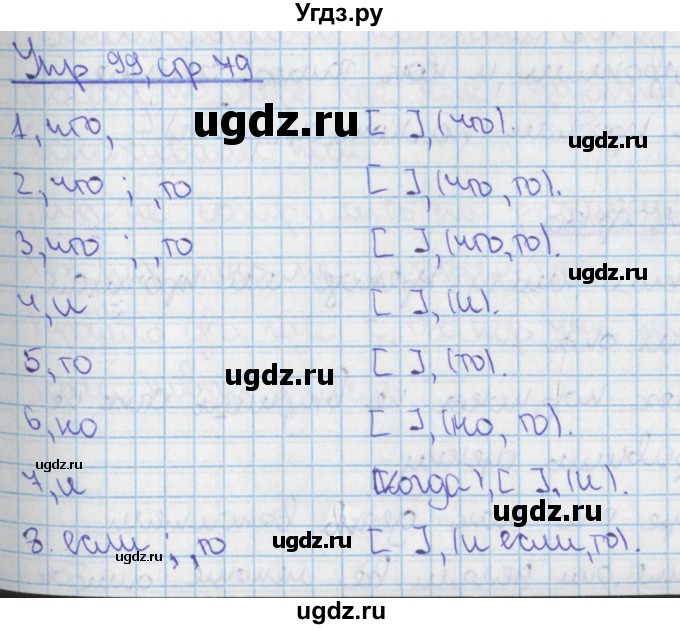 Угдз.ру
Упр 99, стр 79
ugdz.ru
1, что, [ ], (что).
ugdz.ru
2, что ; , то [ ], (что, то).
3, что ; , то [ ], (что, то).
ugdz.ru
4, и [ ], (и).
5, то [ ], (то).
ugdz.ru
6, но [ ], (но, то).
ugdz.ru
7, и (Когда), [ ], (и).
ugdz.ru
8. если ; , то [ ], (и если, то).
ugdz.ru
ugdz.ru
ugdz.ru